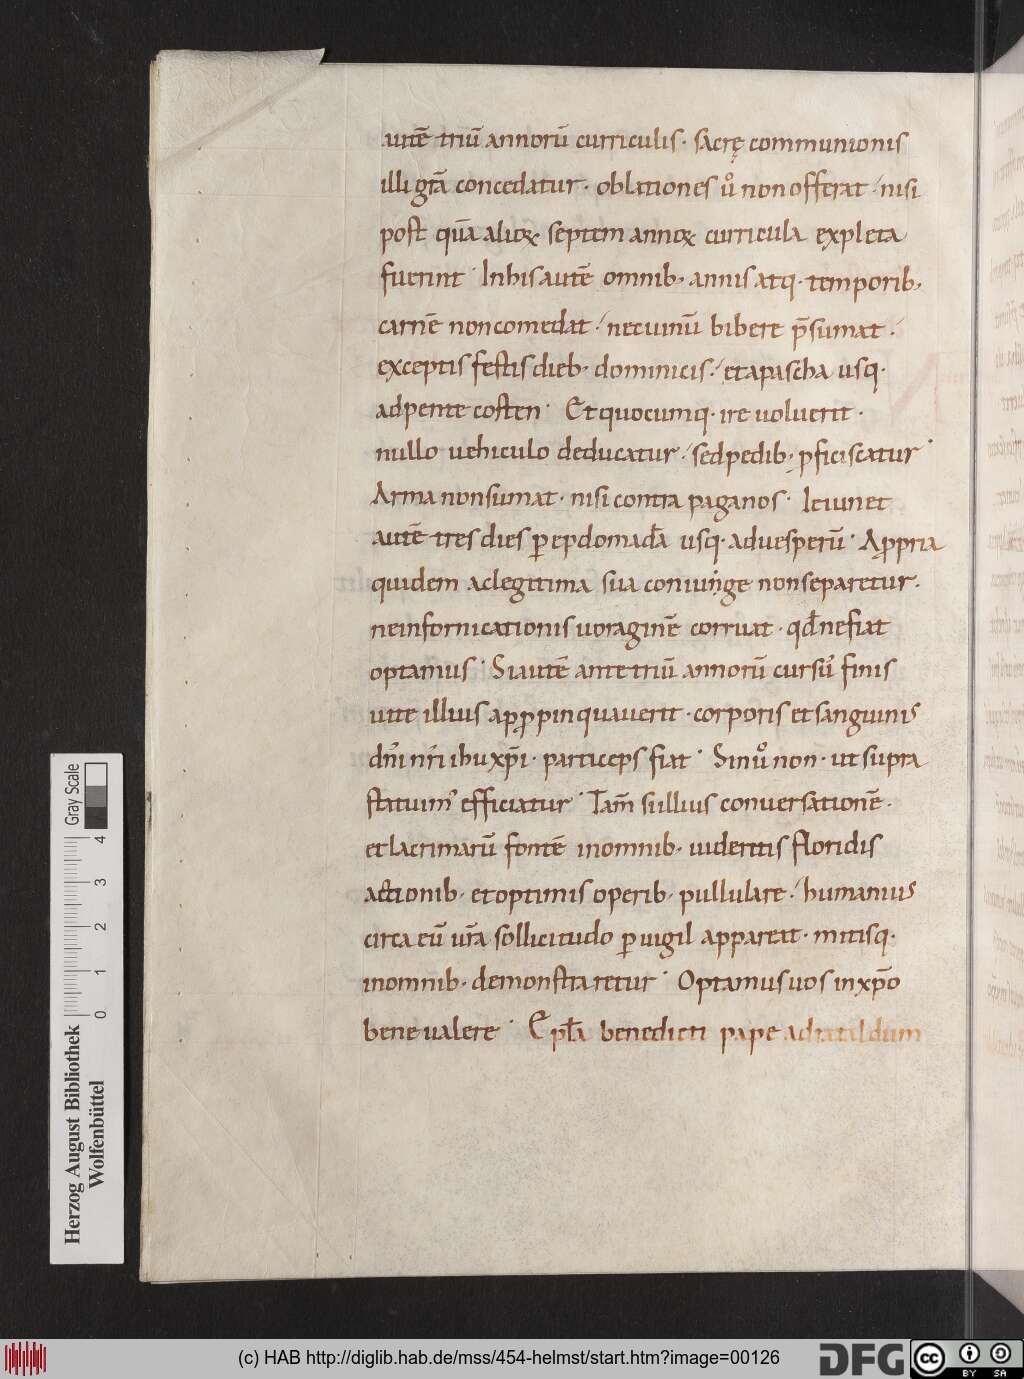 autē triū annorū curriculis · sacrę communionis
illi gr̄a concedatur · oblationes ů non offerat · nisi
post quā alioꝝ septem annoꝝ curricula expleta
fuerint · In his autē omnib; annis atq; temporib;
carnē non comedat · nec uinū bibere p̄sumat ·
exceptis festis dieb; dominicis · et a pascha usq;
ad pentecosten · Et quocumq; ire uoluerit ·
nullo uehiculo deducatur · sed pedib; ꝓficiscatur ·
Arma non sumat · nisi contra paganos · Ieiunet
autē tres dies ꝑ epdomadā usq; ad uesperū · A ꝓpria
quidem ac legitima sua coniunge non separetur ·
ne in fornicationis uoraginē corruat · qđ ne fiat
optamus · Si autē ante triū annorū cursū finis
uite illius apꝓpinquauerit · corporis et sanguinis
dn̄i nr̄i ihu xp̄i · particeps fiat · Sin ů non · ut supra
statuim' efficiatur · Tam̄ si illius conuersationē ·
et lacrimarū fontē in omnib; uideritis floridis
actionib; et optimis operib; pullulare · humanius
circa eū ur̄a sollicitudo ꝑuigil appareat · mitisq;
in omnib; demonstraretur · Optamus uos in xp̄o
bene ualere · Epl̄a benedicti pape ad rataldum
Gray Scale
4
3
2
1
0
Herzog August Bibliothek
Wolfenbüttel
(c) HAB http://diglib.hab.de/mss/454-helmst/start.htm?image=00126
DFG
cc BY SA